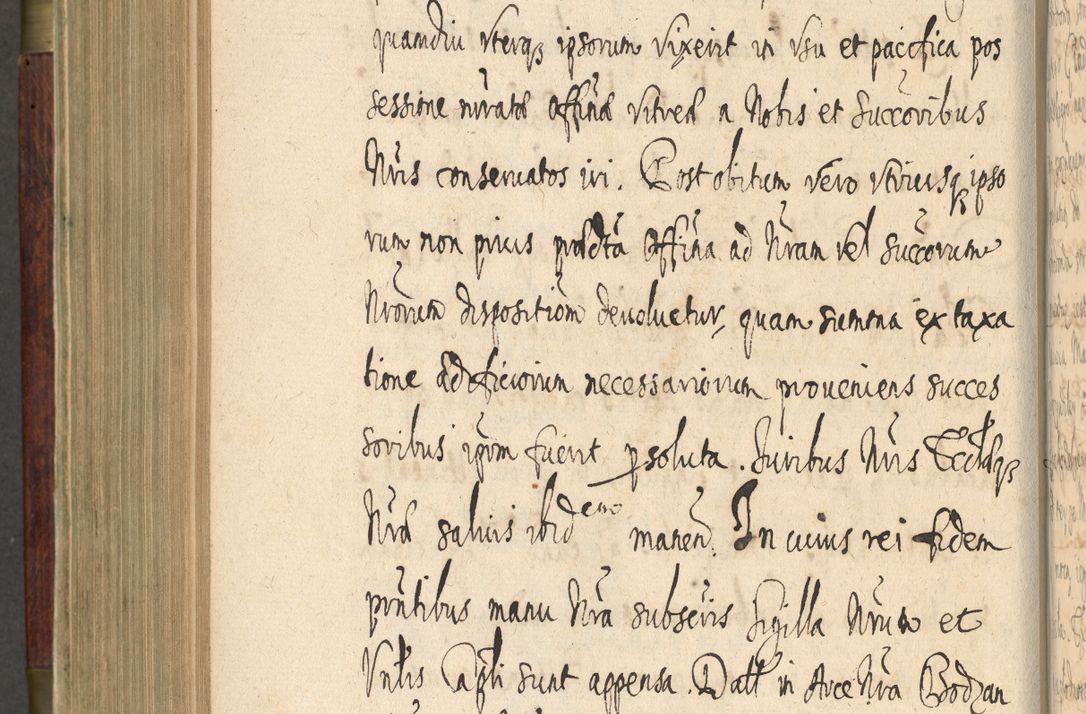 quamdiu vterqȝ ipsorum vixerit in vsu et pacifica pos
sessione nūratæ offinæ vitreæ a Nobis et Succoribus
Nr̄is conseruatos iri. Post obitum vero vtriusqȝ ipso
rum non prius prædc̄ta Offīna ad Nr̄am vel Succorum
Nr̄orum dispositiōm deuoluetur, quam summa ex taxa
tione ædificiorum necessariorum proueniens succes
soribus ipōrm fuerit persoluta. Iuribus Nr̄is Ecclæqȝ
Nr̄æ saluis ibidem manen. In cuius rei fidem
prn̄tibus manu Nr̄a subscris Sigilla Nr̄um et
Vnlis Capli sunt appensa. Datt in Arce Nr̄a Bodzan